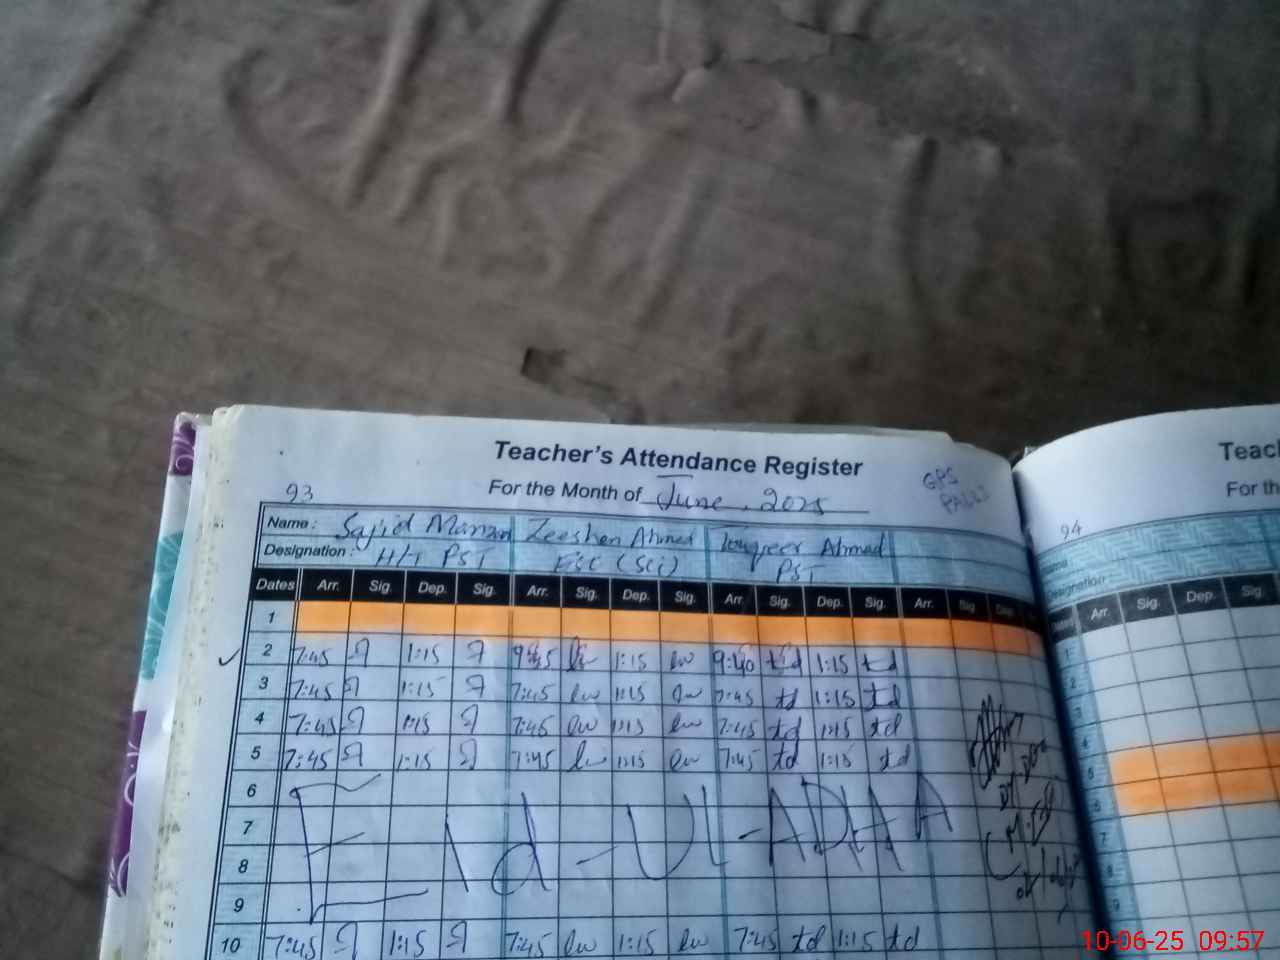 Teacher's Attendance Register
For the Month of June, 2025
GPS
PALLI
93
Name: Sajid Manzor Zeeshan Ahmed Touqeer Ahmad
Designation: H/T PST EST (Sci) PST
Dates Arr. Sig. Dep. Sig. Arr. Sig. Dep. Sig. Arr. Sig. Dep. Sig. Arr. Sig. Dep.
1
2 7:45 1:15 1:15 9:40 td 1:15 td
3 7:45 1:15 7:45 1:15 7:45 td 1:15 td
4 7:45 1:15 7:45 1:15 7:45 td 1:15 td
5 7:45 1:15 7:45 1:15 7:45 td 1:15 td
6
7
8
9
Eid-Ul-ADHA
10 7:45 1:15 7:45 1:15 7:45 td 1:15 td
Teac
For th
94
Name
Designation
Dates Arr. Sig. Dep. Sig.
1
2
3
4
5
6
7
8
9
10-06-25 09:57